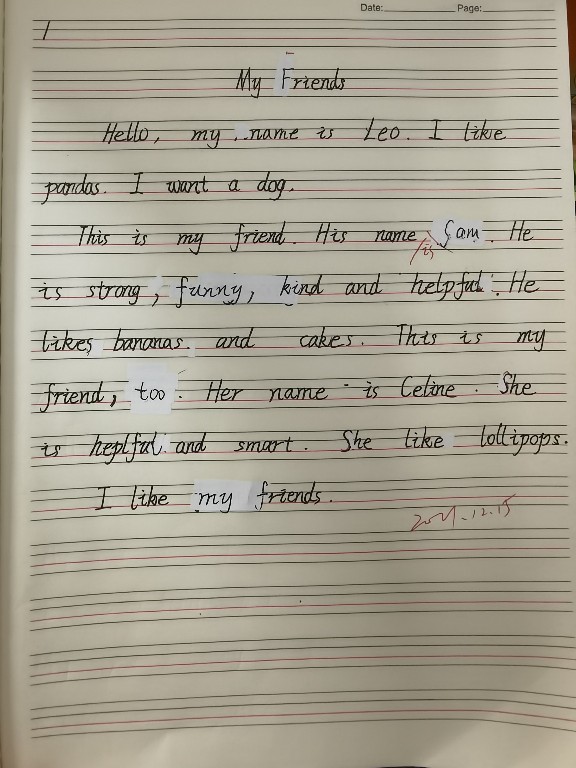 Date: Page:
My Friends
Hello, my name is Leo. I like
pandas. I want a dog.
This is my friend. His name is Sam. He
is strong, funny, kind and helpful. He
likes bananas and cakes. This is my
friend, too. Her name is Celine. She
is heplful and smart. She like lollipops.
I like my friends.